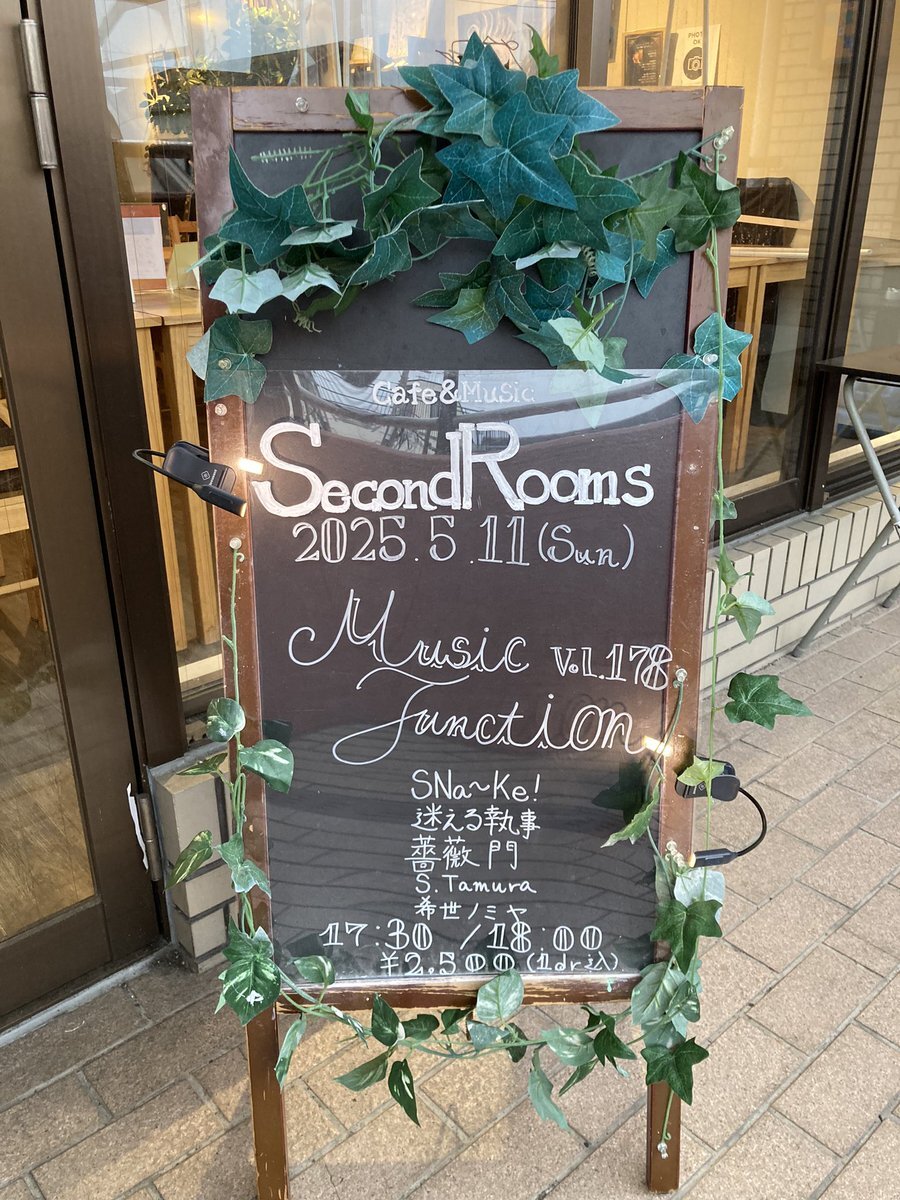 PHOTO
Cafe&Music
SecondRooms
2025.5.11(Sun)
Music Vol.178
Junction
SNa~Ke!
迷える執事
薔薇門
S.Tamura
希世ノミヤ
17:30 /18:00
¥2.500(1dr込)